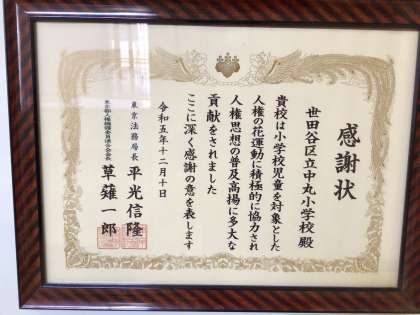 感謝状
世田谷区立中丸小学校 殿
貴校は小学校児童を対象とした
人権の花運動に積極的に協力され
人権思想の普及高揚に多大な
貢献をされました
ここに深く感謝の意を表します
令和五年十二月十日
東京法務局長 平光信隆
東京都人権擁護委員連合会会長 草薙一郎